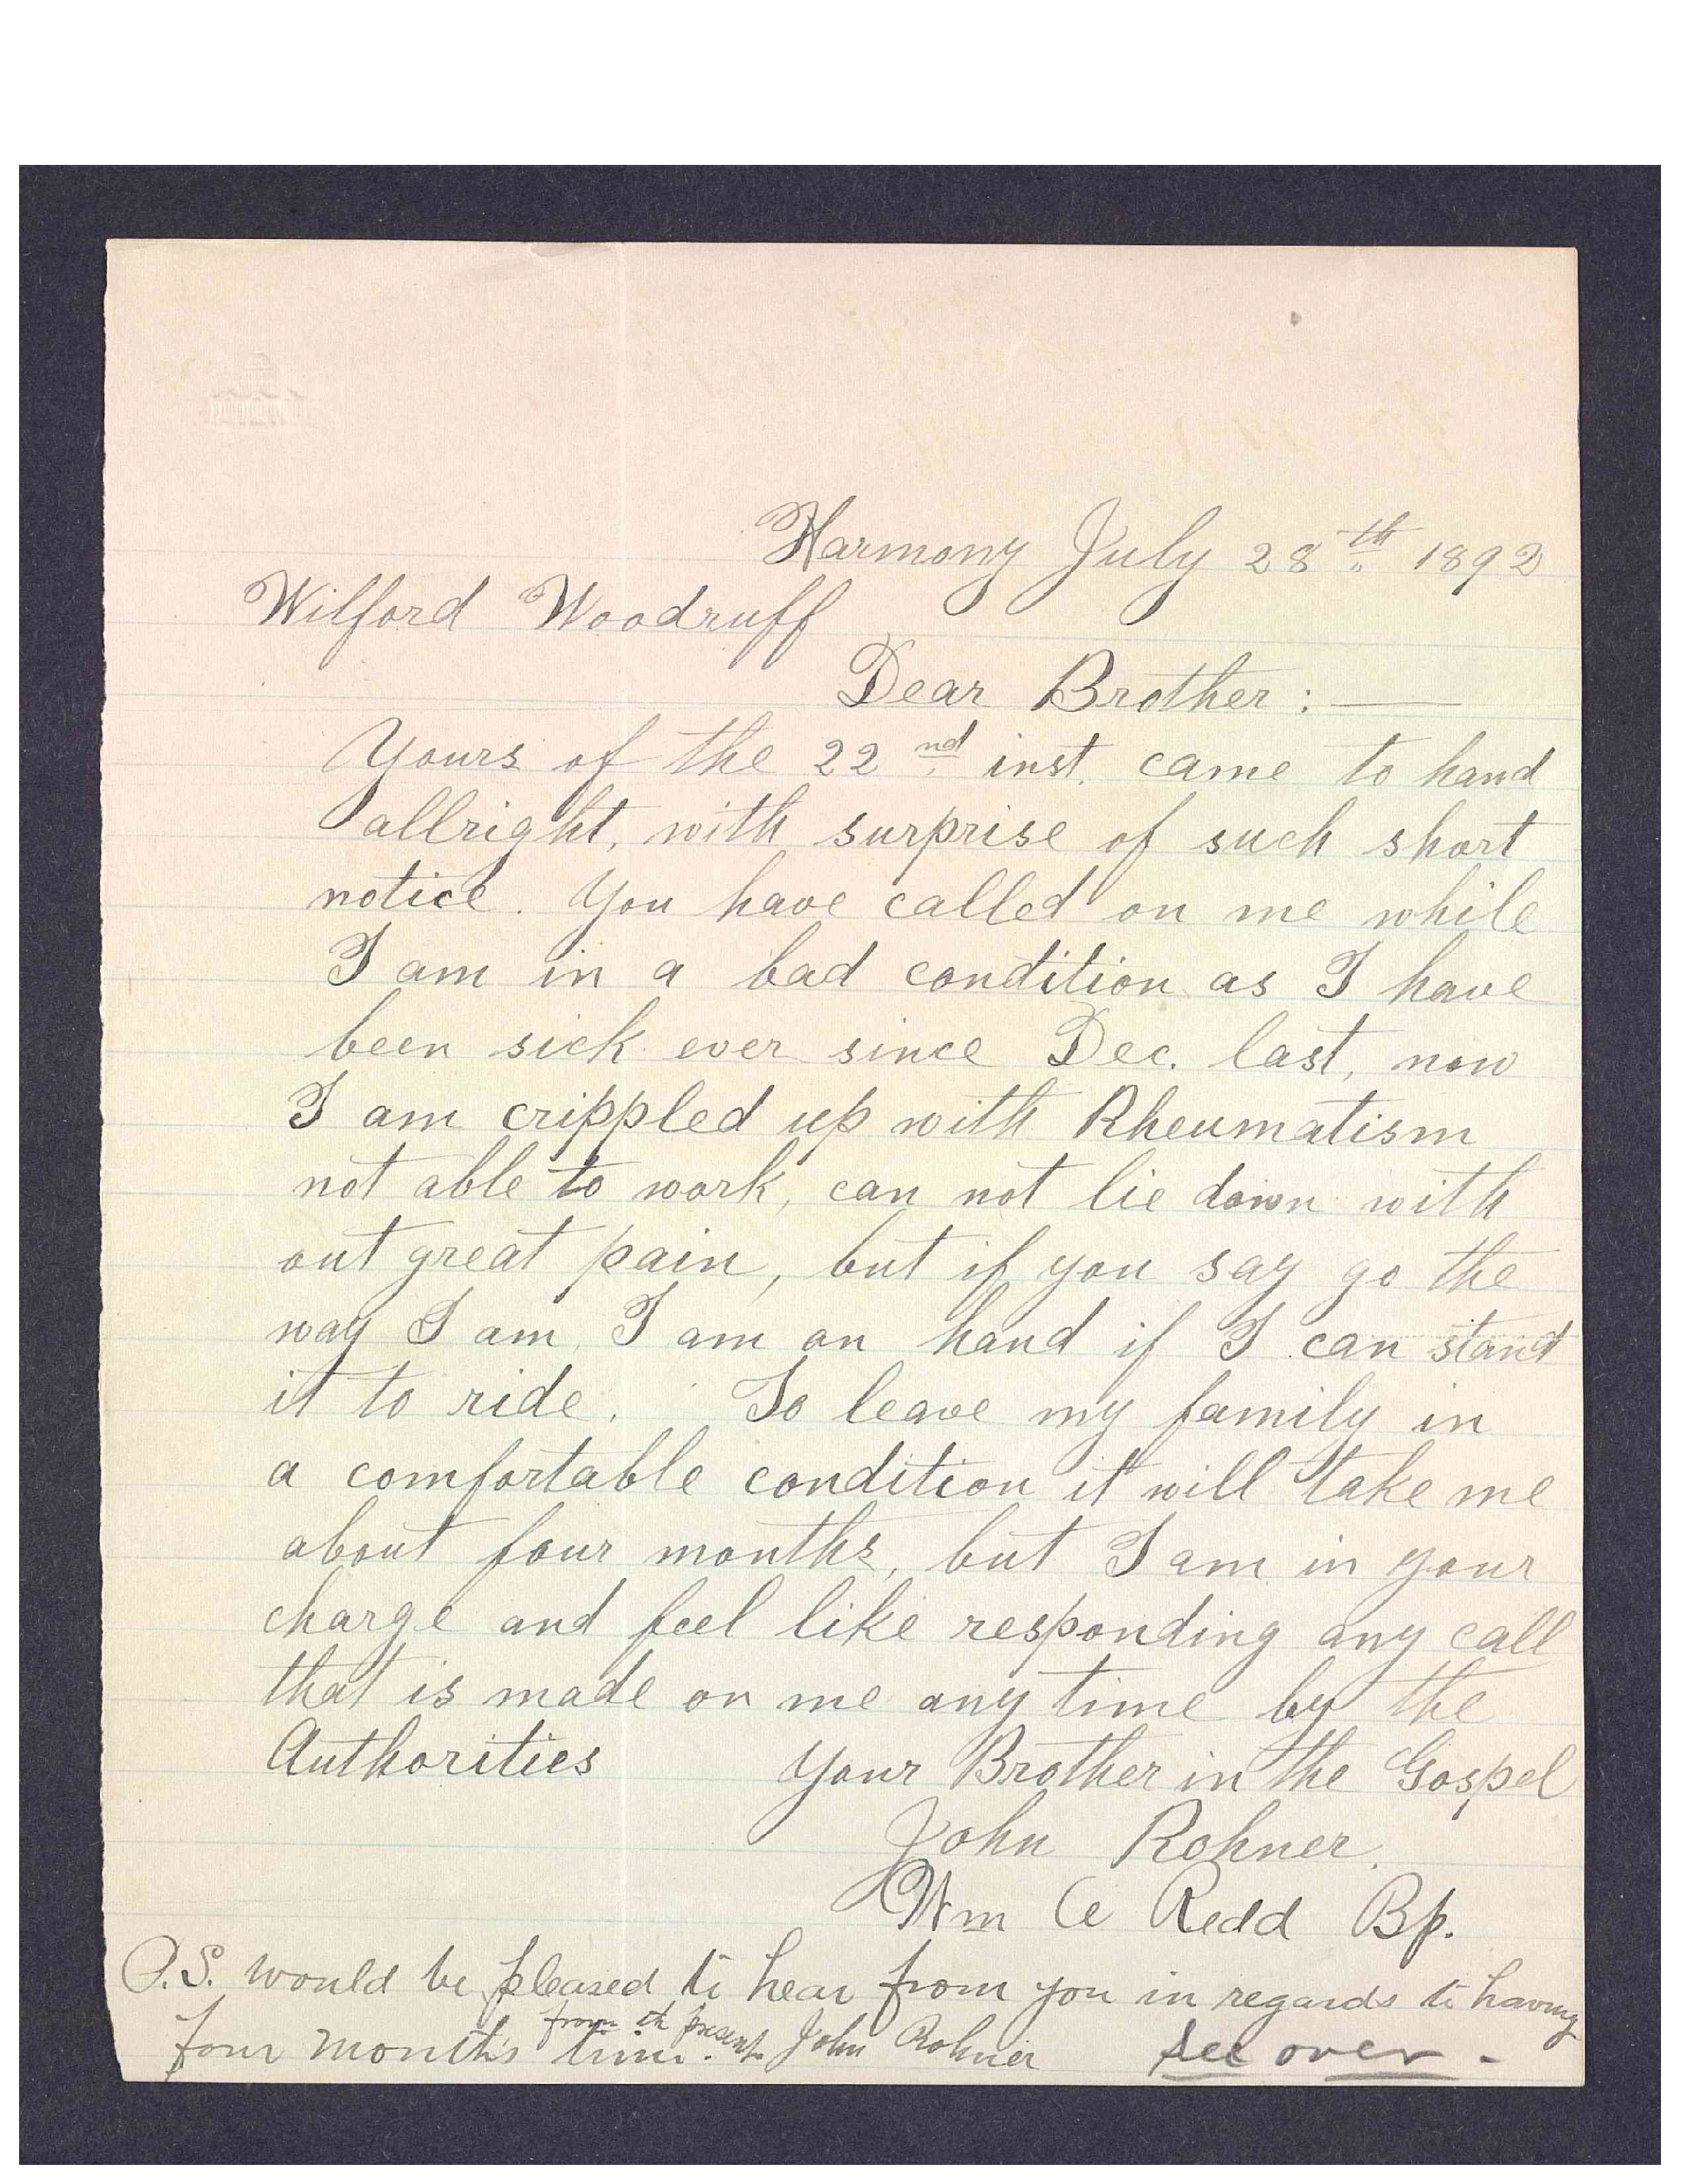 Harmony July 28th 1892
Wilford Woodruff
Dear Brother : —
Yours of the 22nd inst. came to hand
allright, with surprise of such short
notice. You have called on me while
I am in a bad condition as I have
been sick ever since Dec. last, now
I am crippled up with Rheumatism
not able to work, can not lie down with
out great pain, but if you say go the
way I am, I am on hand if I can stand
it to ride. To leave my family in
a comfortable condition it will take me
about four months, but I am in your
charge and feel like responding any call
that is made on me any time by the
Authorities Your Brother in the Gospel
John Rohner.
Wm A Redd Bp.
P.S. would be pleased to hear from you in regards to having
from th present
four months time. John Rohner see over -